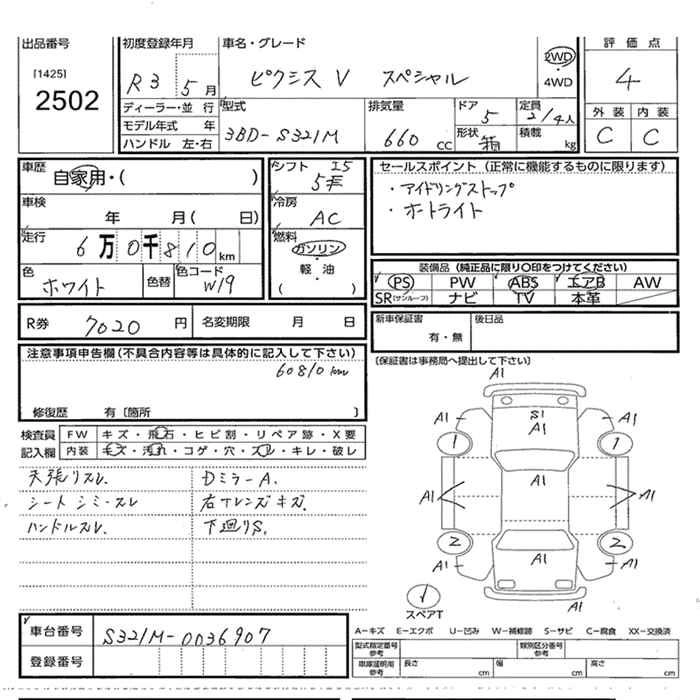 出品番号
[1425]
2502
初度登録年月
R3 5月
車名・グレード
ピクシス V スペシャル
2WD
・
4WD
評価点
4
外装 内装
C C
ディーラー・並行
モデル年式 年
ハンドル 左・右
型式
3BD-S321M
排気量
660 CC
ドア
5
形状
箱
定員
2/4人
積載
kg
車歴
自家用・( )
車検
年 月( 日)
走行
6万0千810km
色
ホワイト
色替
色コード
W19
シフト
I5
冷房
AC
燃料
ガソリン
・
軽油
( )
セールスポイント (正常に機能するものに限ります)
・アイドリングストップ
・オートライト
装備品 (純正品に限り○印をつけてください)
PS PW ABS エアB AW
SR(サンルーフ) ナビ TV 本革
R券 7020円
名変期限 月 日
新車保証書
有・無
後日品
(保証書は事務局へ提出して下さい)
注意事項申告欄(不具合内容等は具体的に記入して下さい)
60810km
修復歴 有〔箇所 〕
検査員 FW キズ・飛石・ヒビ割・リペア跡・X要
記入欄 内装 キズ・汚れ・コゲ・穴・スレ・キレ・破レ
天張リスレ.
シート シミ・スレ
ハンドルスレ.
DミラーA.
右テレンズキズ.
下廻りS.
A1
A1 S1 A1
A1
1 1
A1 A1 A1
2 2
A1 A1 A1
A1
スペアT
A-キズ E-エクボ U-凹み W-補修跡 S-サビ C-腐食 XX-交換済
車台番号
S321M-0036907
登録番号
型式指定番号
参考
類別区分番号
参考
車庫証明用
参考
長さ cm
幅 cm
高さ cm